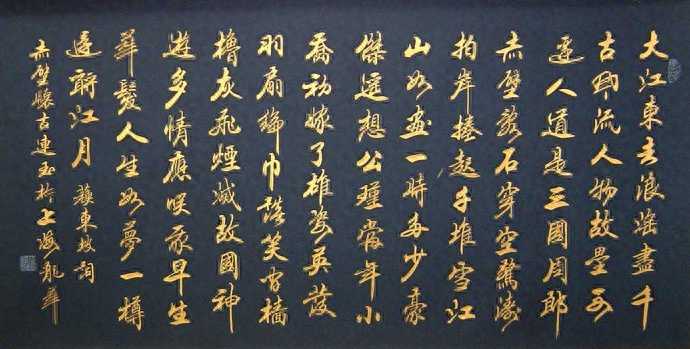 大江東去浪淘盡千
古風流人物故壘西
邊人道是三國周郎
赤壁亂石穿空驚濤
拍岸捲起千堆雪江
山如畫一時多少豪
傑遙想公瑾當年小
喬初嫁了雄姿英發
羽扇綸巾談笑間檣
櫓灰飛煙滅故國神
遊多情應笑我早生
華髮人生如夢一樽
還酹江月 蘇東坡詞
赤壁懷古連玉於上海龍華